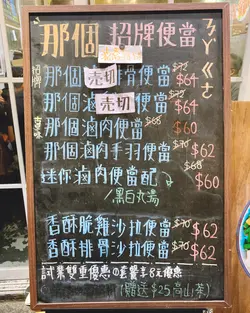 那個 招牌便當
ㄋㄚˋ ㄍㄜˋ
招牌
那個 售切 排骨便當 $72 $64
那個滷 售切 便當 $72 $64
那個滷肉便當 $68 $60
那個滷肉手羽便當 $70 $62
迷你滷肉便當配 $68 $60
黑白丸湯
香酥脆雞沙拉便當 $70 $62
香酥排骨沙拉便當 $70 $62
試業雙重優惠◎套餐享8元優惠
(贈送$25高山茶)